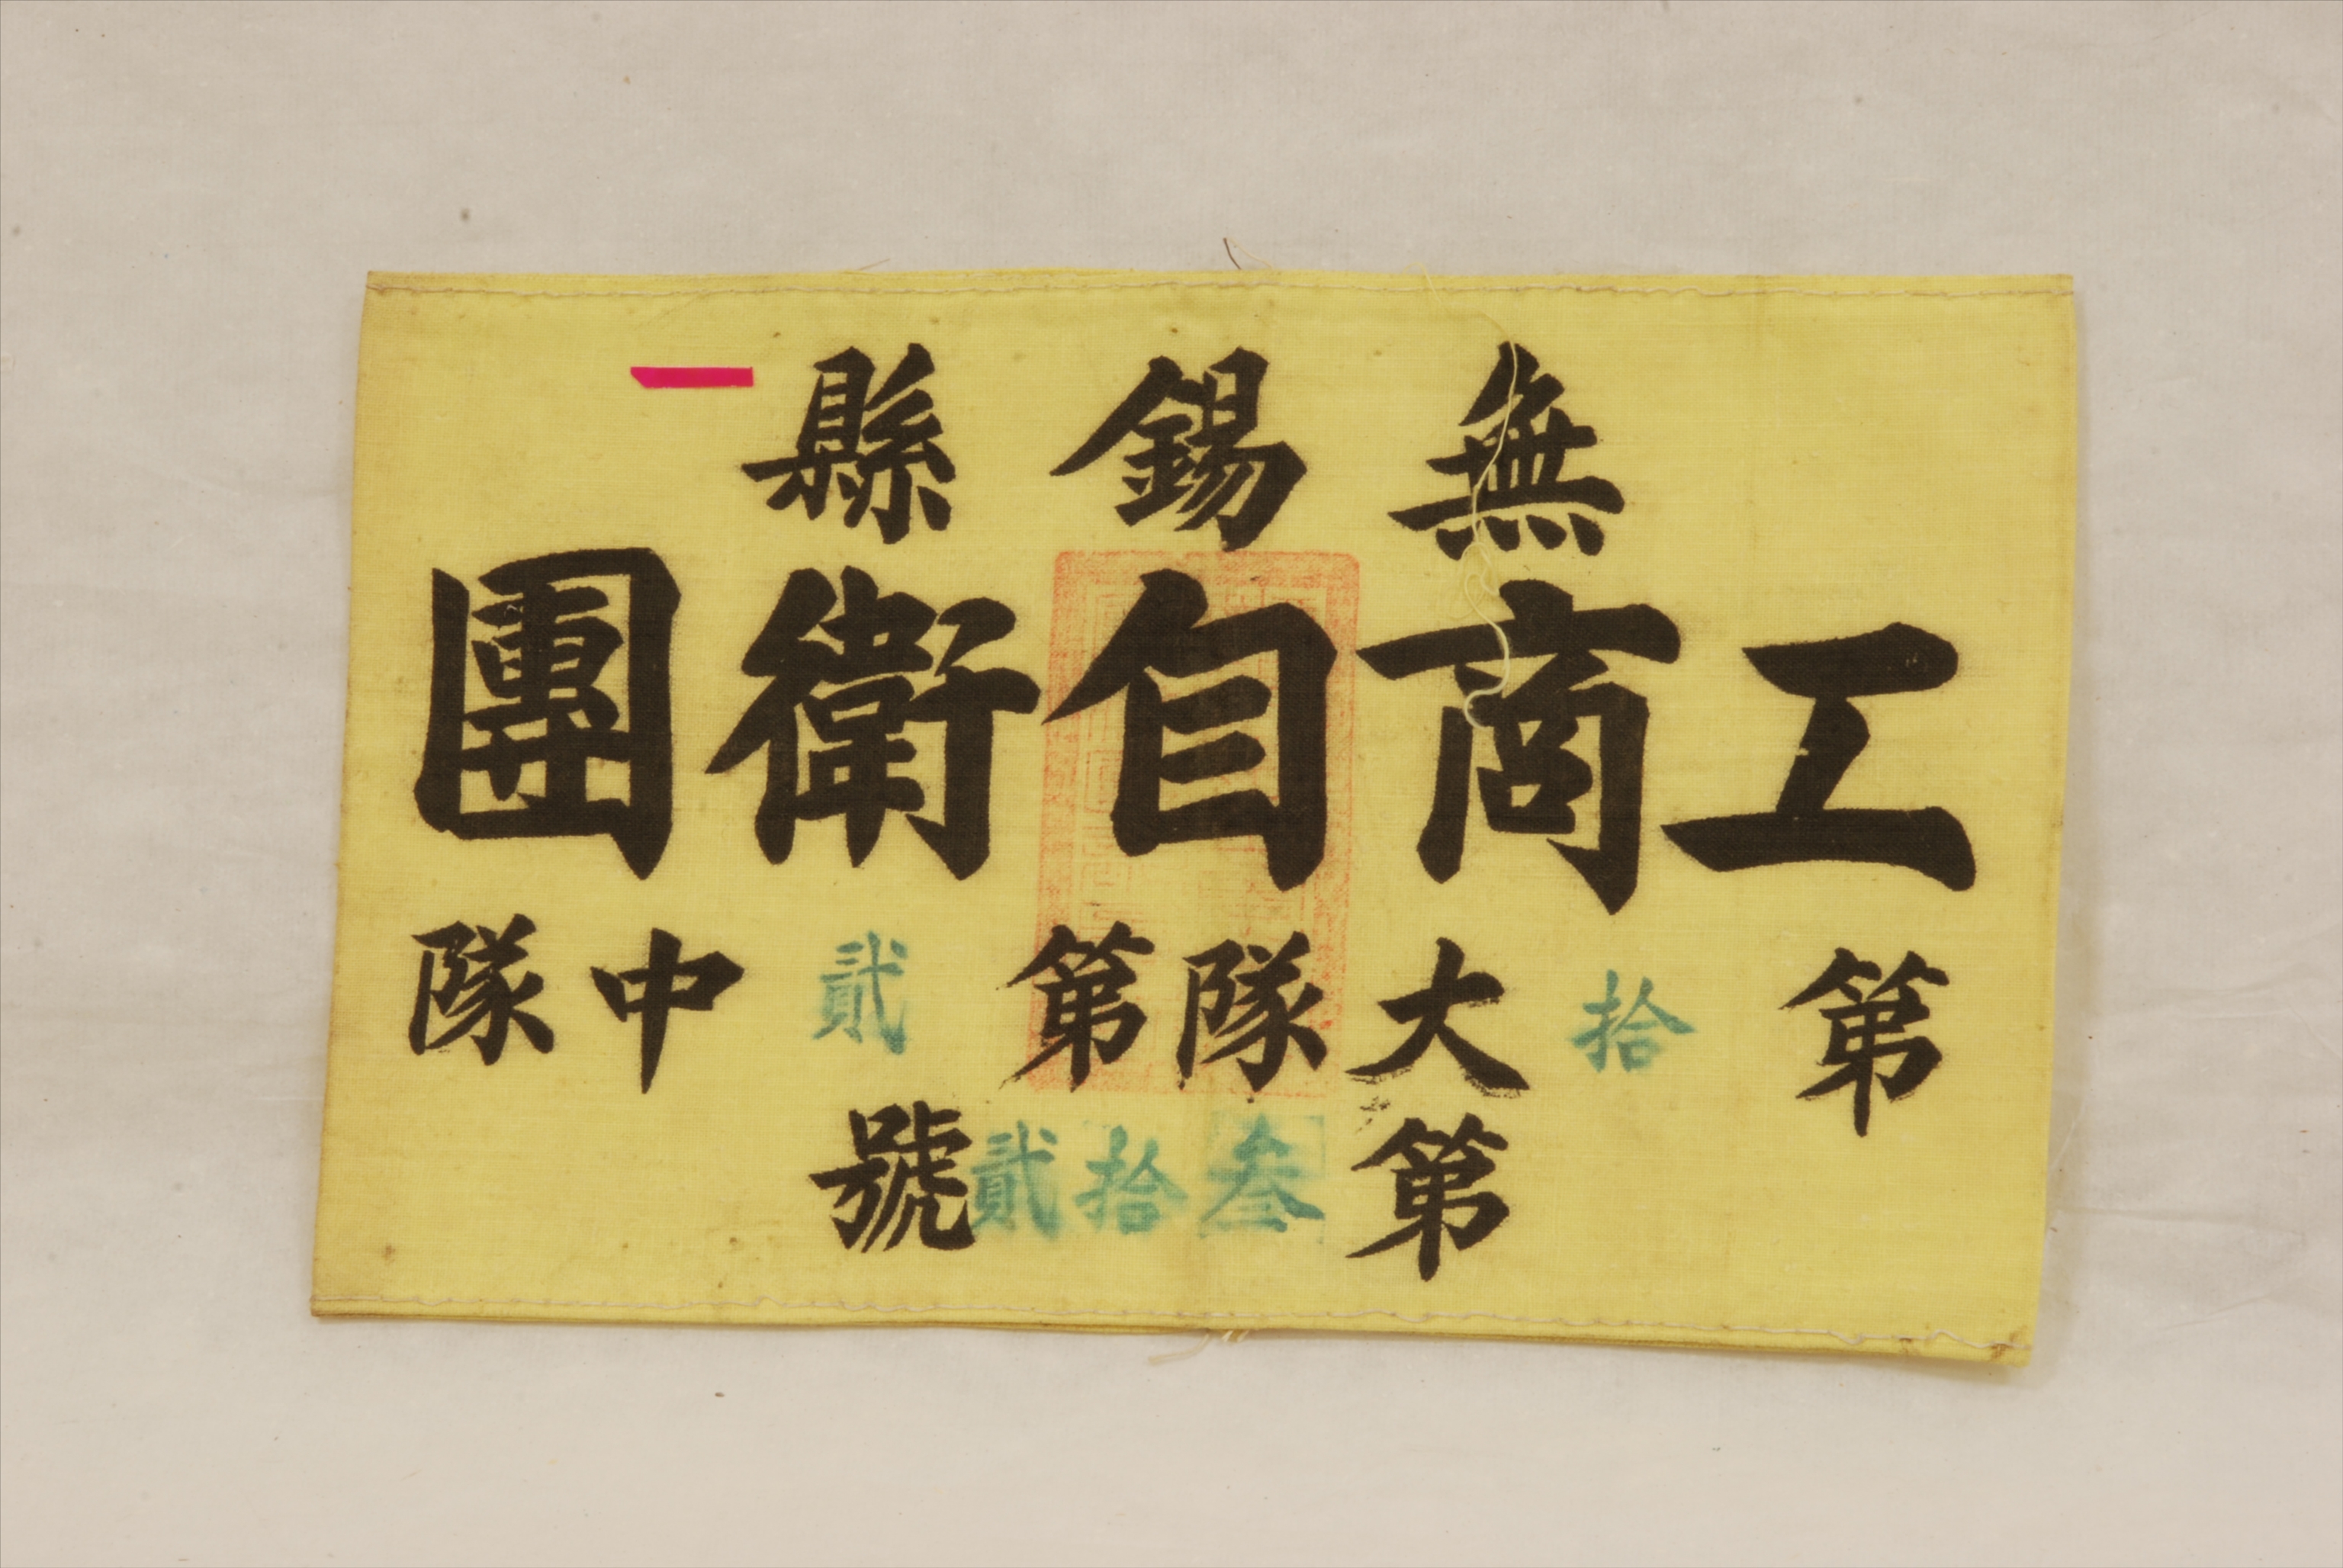 無錫縣
工商自衛團
第拾大隊第貳中隊
第叁拾貳號